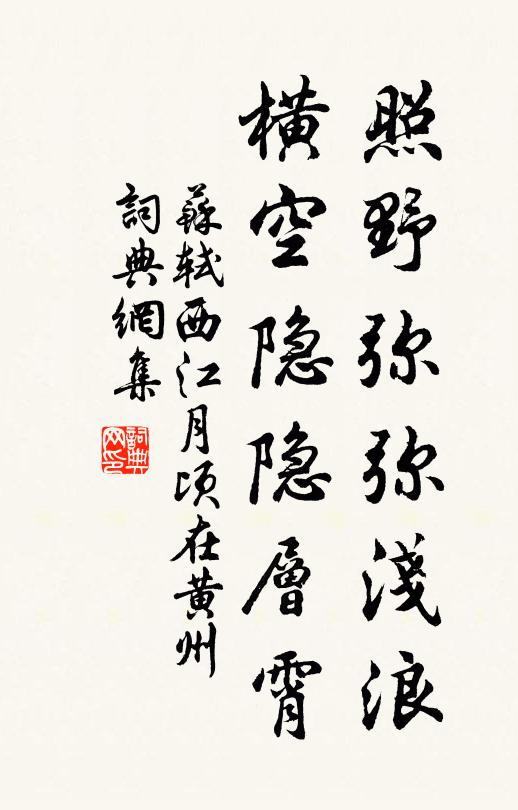 照野弥弥淺浪
横空隐隐層霄
蘇軾西江月頃在黄州
詞典網集
詞典网印